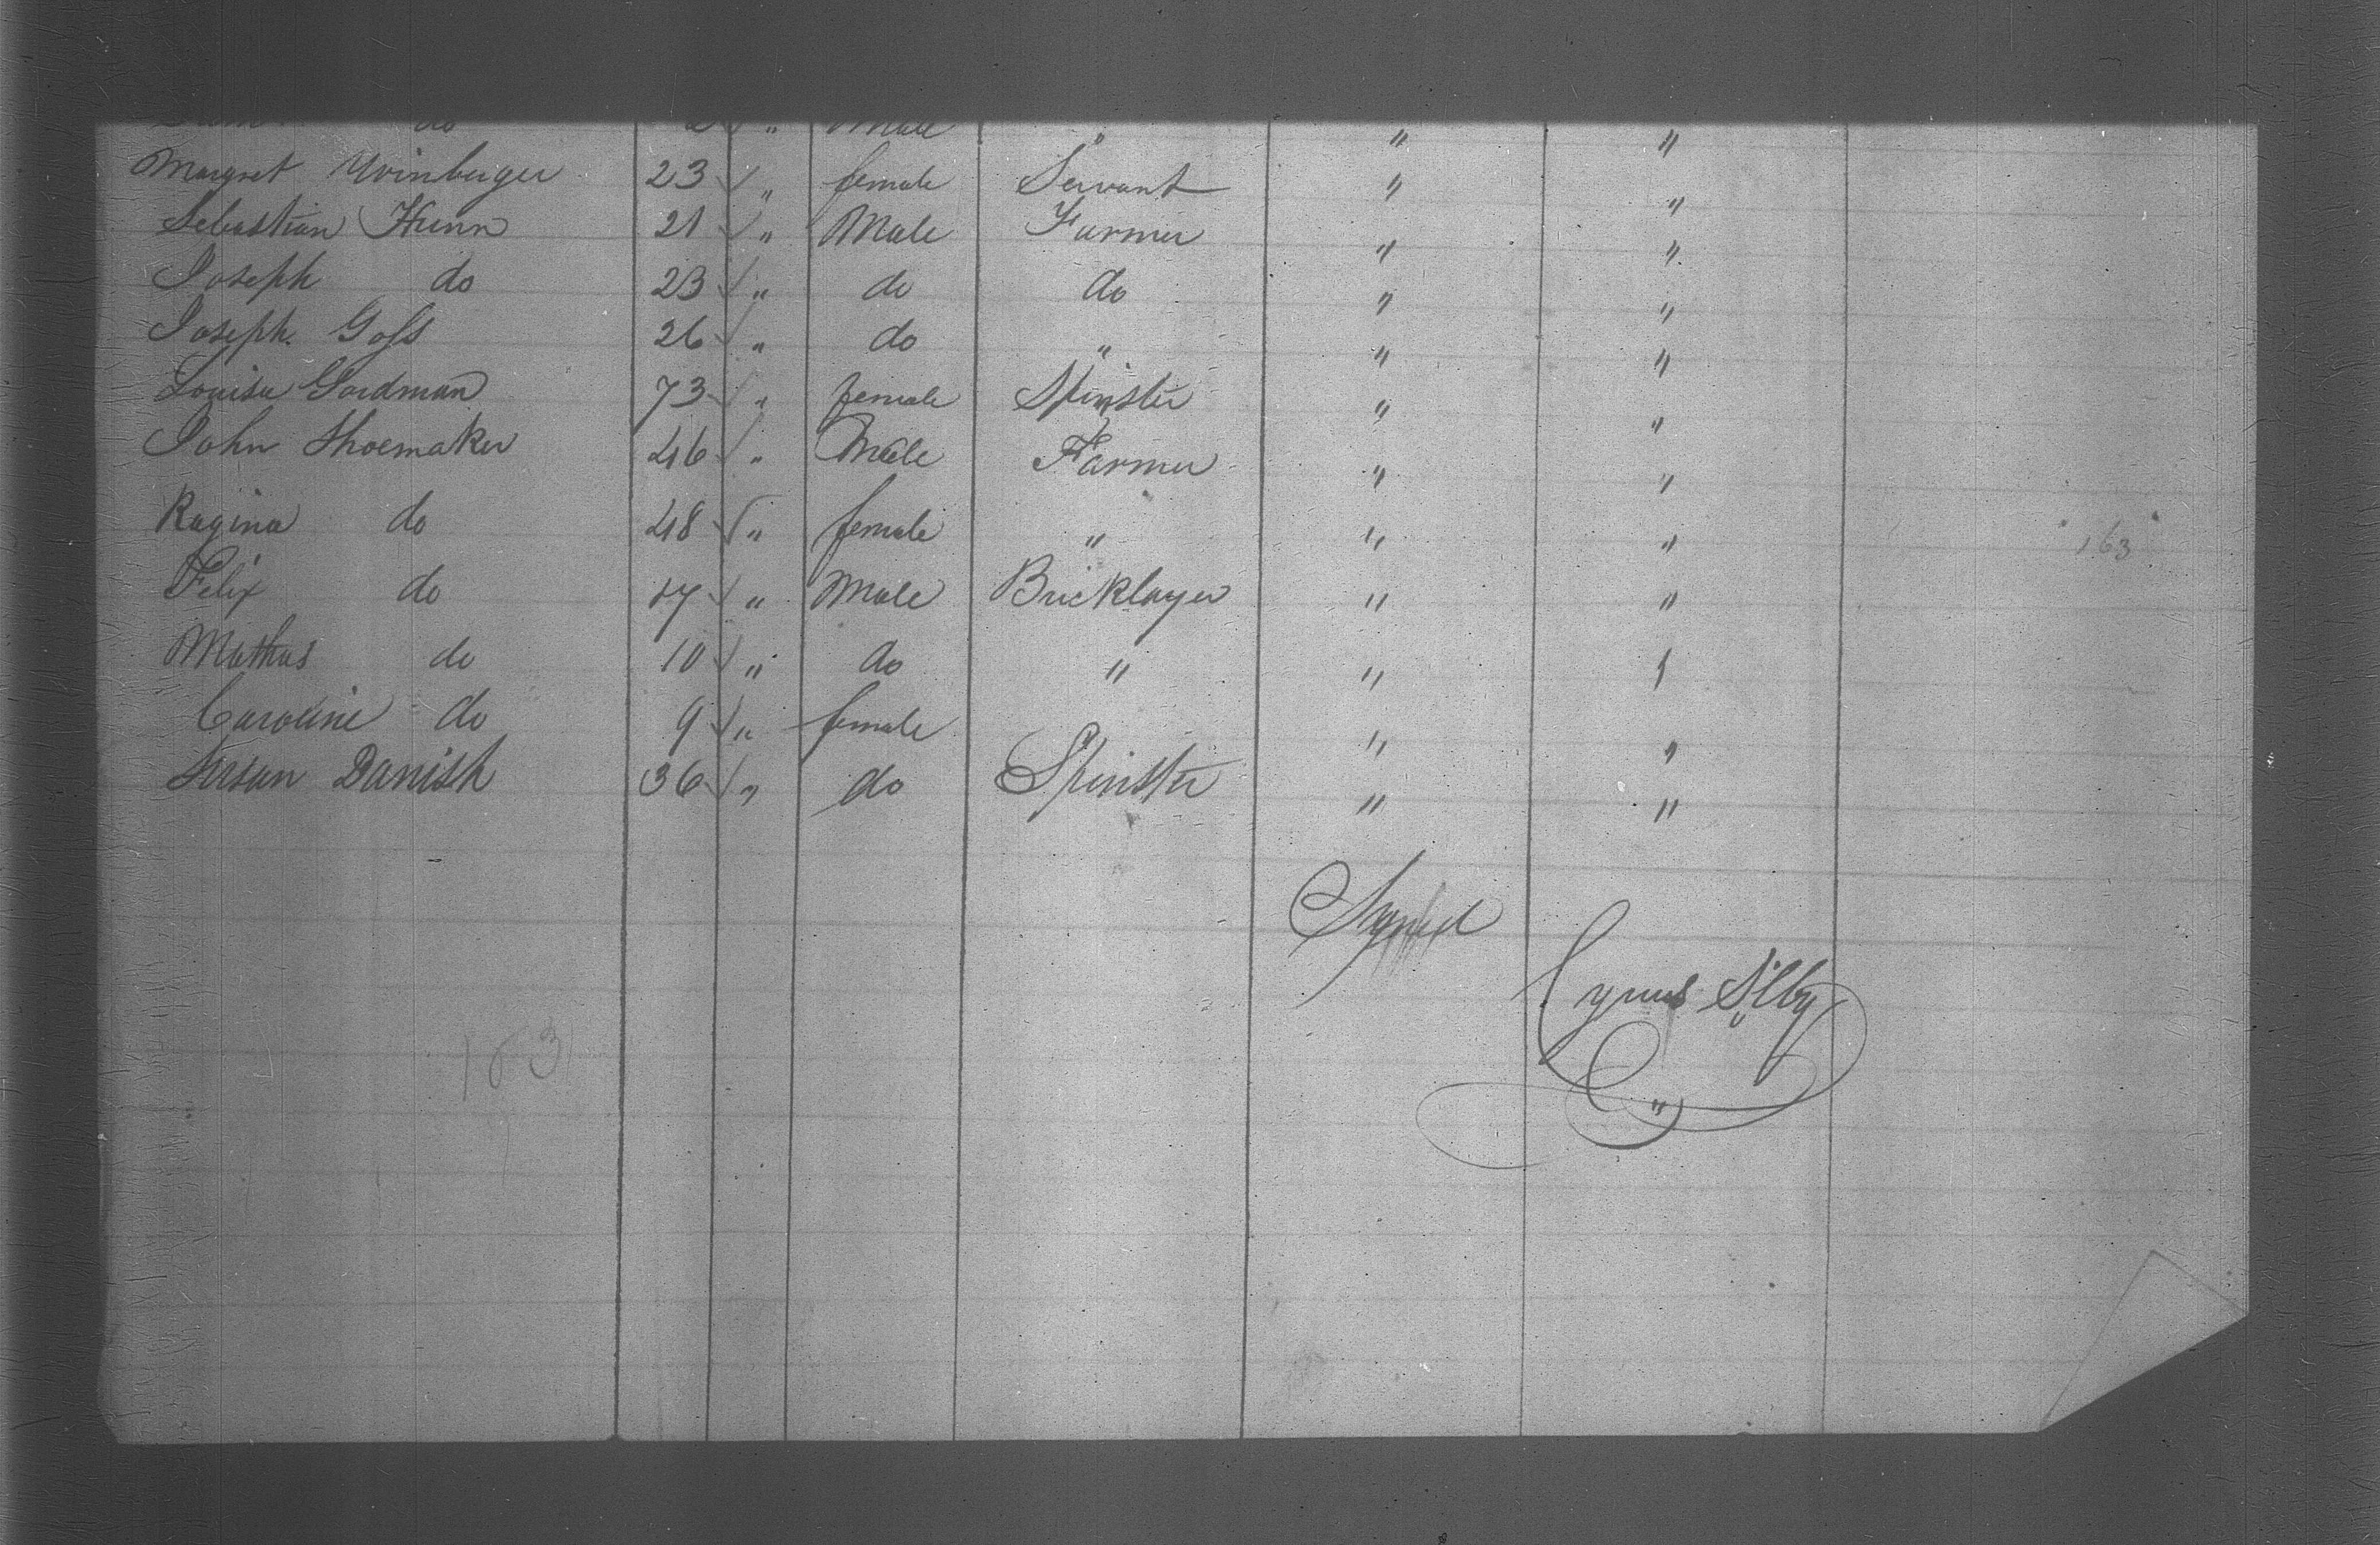 do 2 " Male " " "
Margret Winberger 23 " female Servant " "
Sebastian Hunn 21 " Male Farmer " "
Joseph do 23 " do do " "
Joseph Goss 26 " do " " "
Louisa Gordman 73 " female Spinster " "
John Shoemaker 46 " Male Farmer " "
Ragina do 48 " female " " "
Felix do 17 " Male Bricklayer " "
Mathas do 10 " do " " "
Caroline do 9 " female " "
Susan Danish 36 " do Spinster " "
163
Signed
Cyrus Silby
"
163